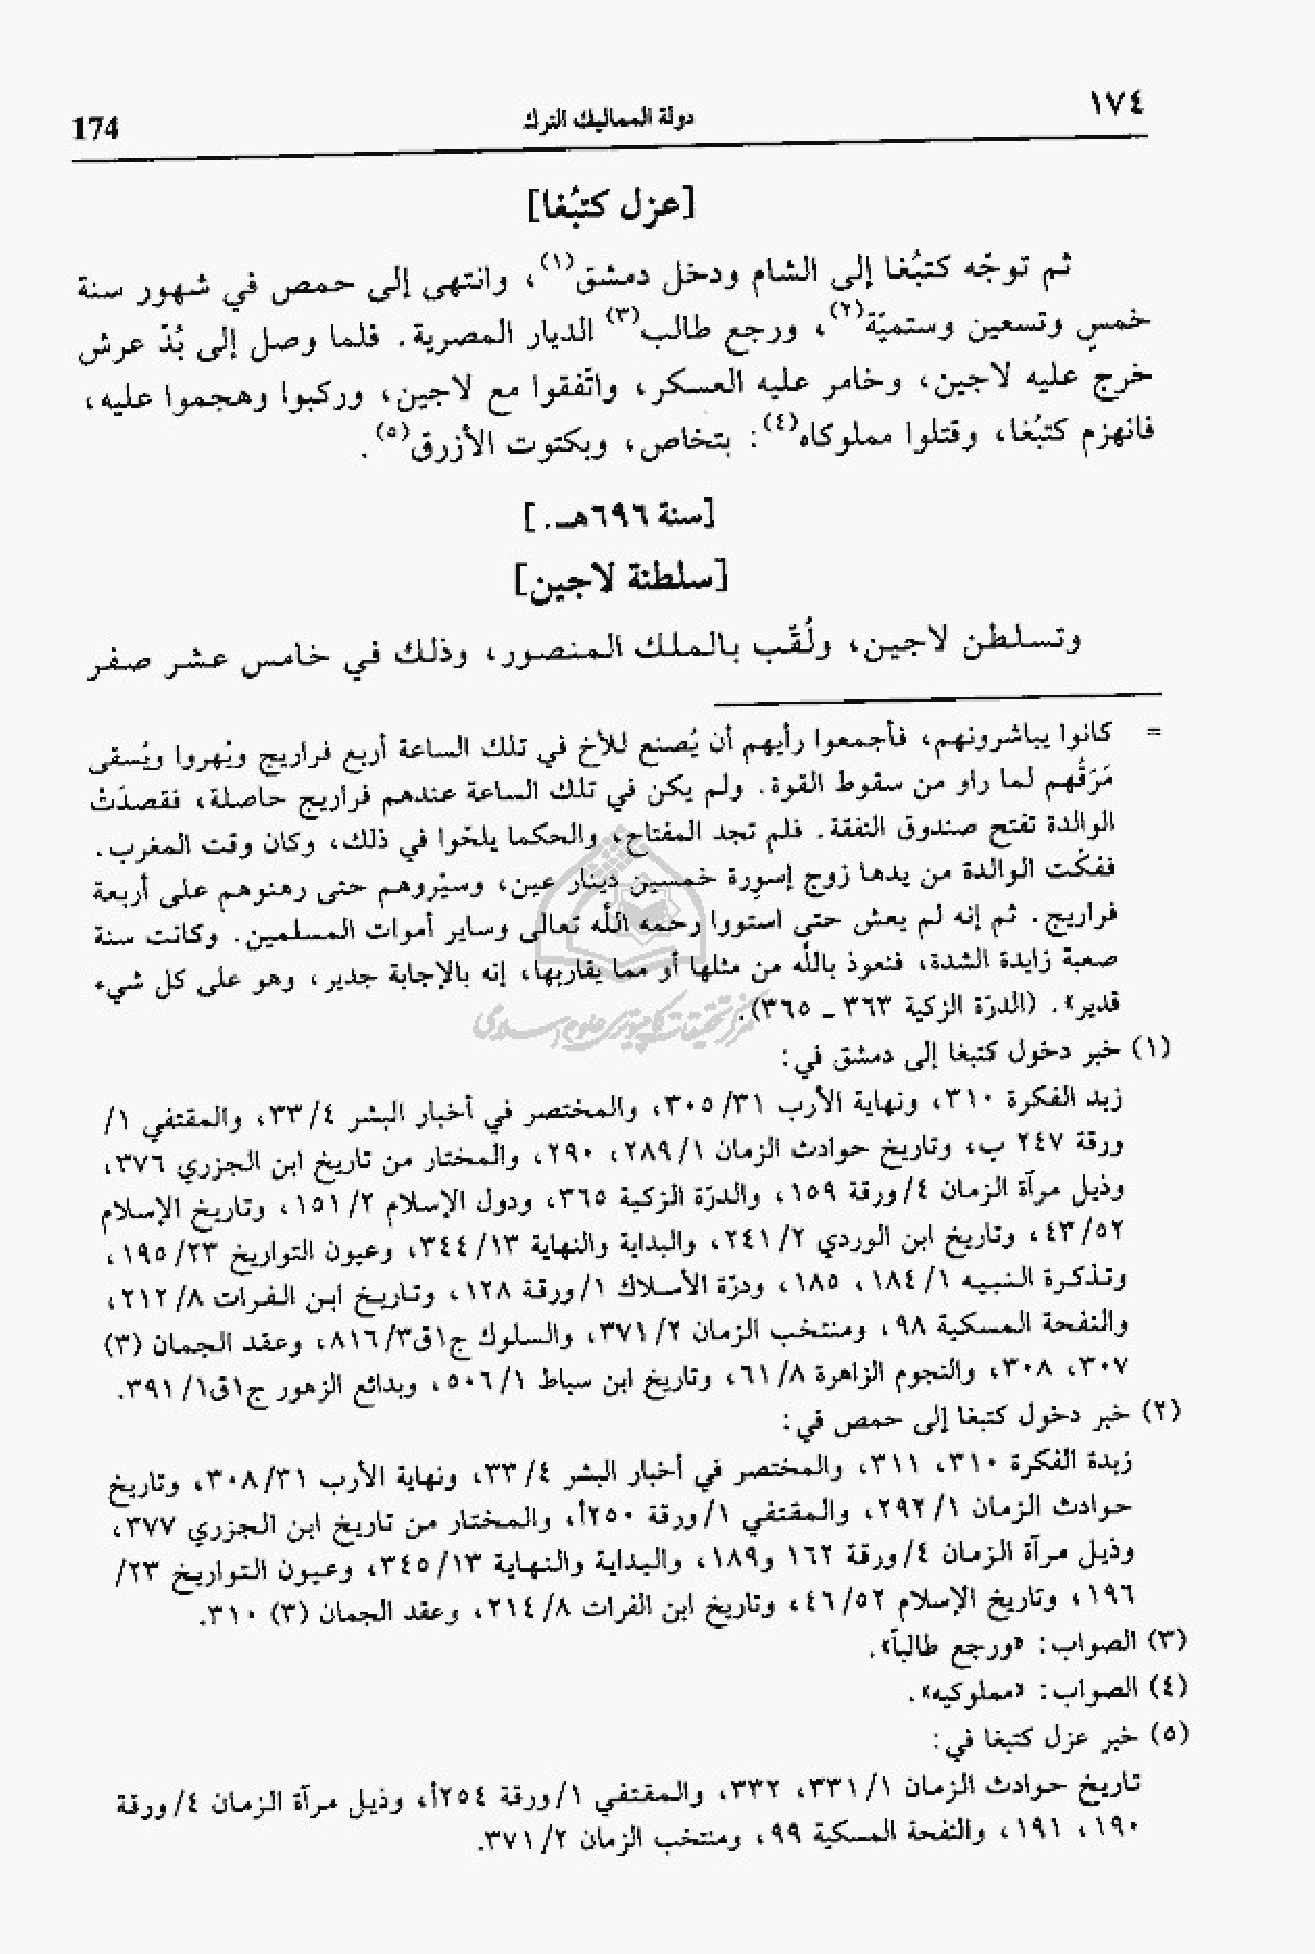 ١٧٤
دولة المماليك الترك
174
[عزل كتبُغا]
ثم توجّه كتبُغا إلى الشام ودخل دمشق(١)، وانتهى إلى حمص في شهور سنة
خمسٍ وتسعين وستميّة(٢)، ورجع طالب(٣) الديار المصرية. فلما وصل إلى بُدّ عرش
خرج عليه لاجين، وخامر عليه العسكر، واتّفقوا مع لاجين، وركبوا وهجموا عليه،
فانهزم كتبُغا، وقتلوا مملوكاه(٤): بتخاص، وبكتوت الأزرق(٥).
[سنة ٦٩٦هـ.]
[سلطنة لاجين]
وتسلطن لاجين، ولُقّب بالملك المنصور، وذلك في خامس عشر صفر
= كانوا يباشرونهم، فأجمعوا رأيهم أن يُصنع للأخ في تلك الساعة أربع فراريج ويُهروا ويُسقى
مَرَقُهم لما راو من سقوط القوة. ولم يكن في تلك الساعة عندهم فراريج حاصلة، فقصدَتْ
الوالدة تفتح صندوق النفقة. فلم تجد المفتاح، والحكما يلحّوا في ذلك، وكان وقت المغرب.
ففكّت الوالدة من يدها زوج إسورة خمسين دينار عين، وسيّروهم حتى رهنوهم على أربعة
فراريج. ثم إنه لم يعش حتى استووا رحمه الله تعالى وساير أموات المسلمين. وكانت سنة
صعبة زايدة الشدة، فنعوذ بالله من مثلها أو مما يقاربها، إنه بالإجابة جدير، وهو على كل شيء
قدير». (الدرّة الزكية ٣٦٣ ـ ٣٦٥).
(١) خبر دخول كتبغا إلى دمشق في:
زبد الفكرة ٣١٠، ونهاية الأرب ٣٠٥/٣١، والمختصر في أخبار البشر ٣٣/٤، والمقتفي ١/
ورقة ٢٤٧ ب، وتاريخ حوادث الزمان ٢٨٩/١، ٢٩٠، والمختار من تاريخ ابن الجزري ٣٧٦،
وذيل مرآة الزمان ٤/ورقة ١٥٩، والدرّة الزكية ٣٦٥، ودول الإسلام ١٥١/٢، وتاريخ الإسلام
٤٣/٥٢، وتاريخ ابن الوردي ٢٤١/٢، والبداية والنهاية ٣٤٤/١٣، وعيون التواريخ ١٩٥/٢٣،
وتذكرة النبيه ١٨٤/١، ١٨٥، ودرّة الأسلاك ١/ورقة ١٢٨، وتاريخ ابن الفرات ٢١٢/٨،
والنفحة المسكية ٩٨، ومنتخب الزمان ٣٧١/٢، والسلوك ج١ق٨١٦/٣، وعقد الجمان (٣)
٣٠٧، ٣٠٨، والنجوم الزاهرة ٦١/٨، وتاريخ ابن سباط ٥٠٦/١، وبدائع الزهور ج١ق٣٩١/١.
(٢) خبر دخول كتبغا إلى حمص في:
زبدة الفكرة ٣١٠، ٣١١، والمختصر في أخبار البشر ٣٣/٤، ونهاية الأرب ٣٠٨/٣١، وتاريخ
حوادث الزمان ٢٩٢/١، والمقتفي ١/ورقة ٢٥٠أ، والمختار من تاريخ ابن الجزري ٣٧٧،
وذيل مرآة الزمان ٤/ورقة ١٦٢ و١٨٩، والبداية والنهاية ٣٤٥/١٣، وعيون التواريخ ٢٣/
١٩٦، وتاريخ الإسلام ٤٦/٥٢، وتاريخ ابن الفرات ٢١٤/٨، وعقد الجمان (٣) ٣١٠.
(٣) الصواب: «ورجع طالباً».
(٤) الصواب: «مملوكيه».
(٥) خبر عزل كتبغا في:
تاريخ حوادث الزمان ٣٣١/١، ٣٣٢، والمقتفي ١/ورقة ٢٥٤أ، وذيل مرآة الزمان ٤/ورقة
١٩٠، ١٩١، والنفحة المسكية ٩٩، ومنتخب الزمان ٣٧١/٢.